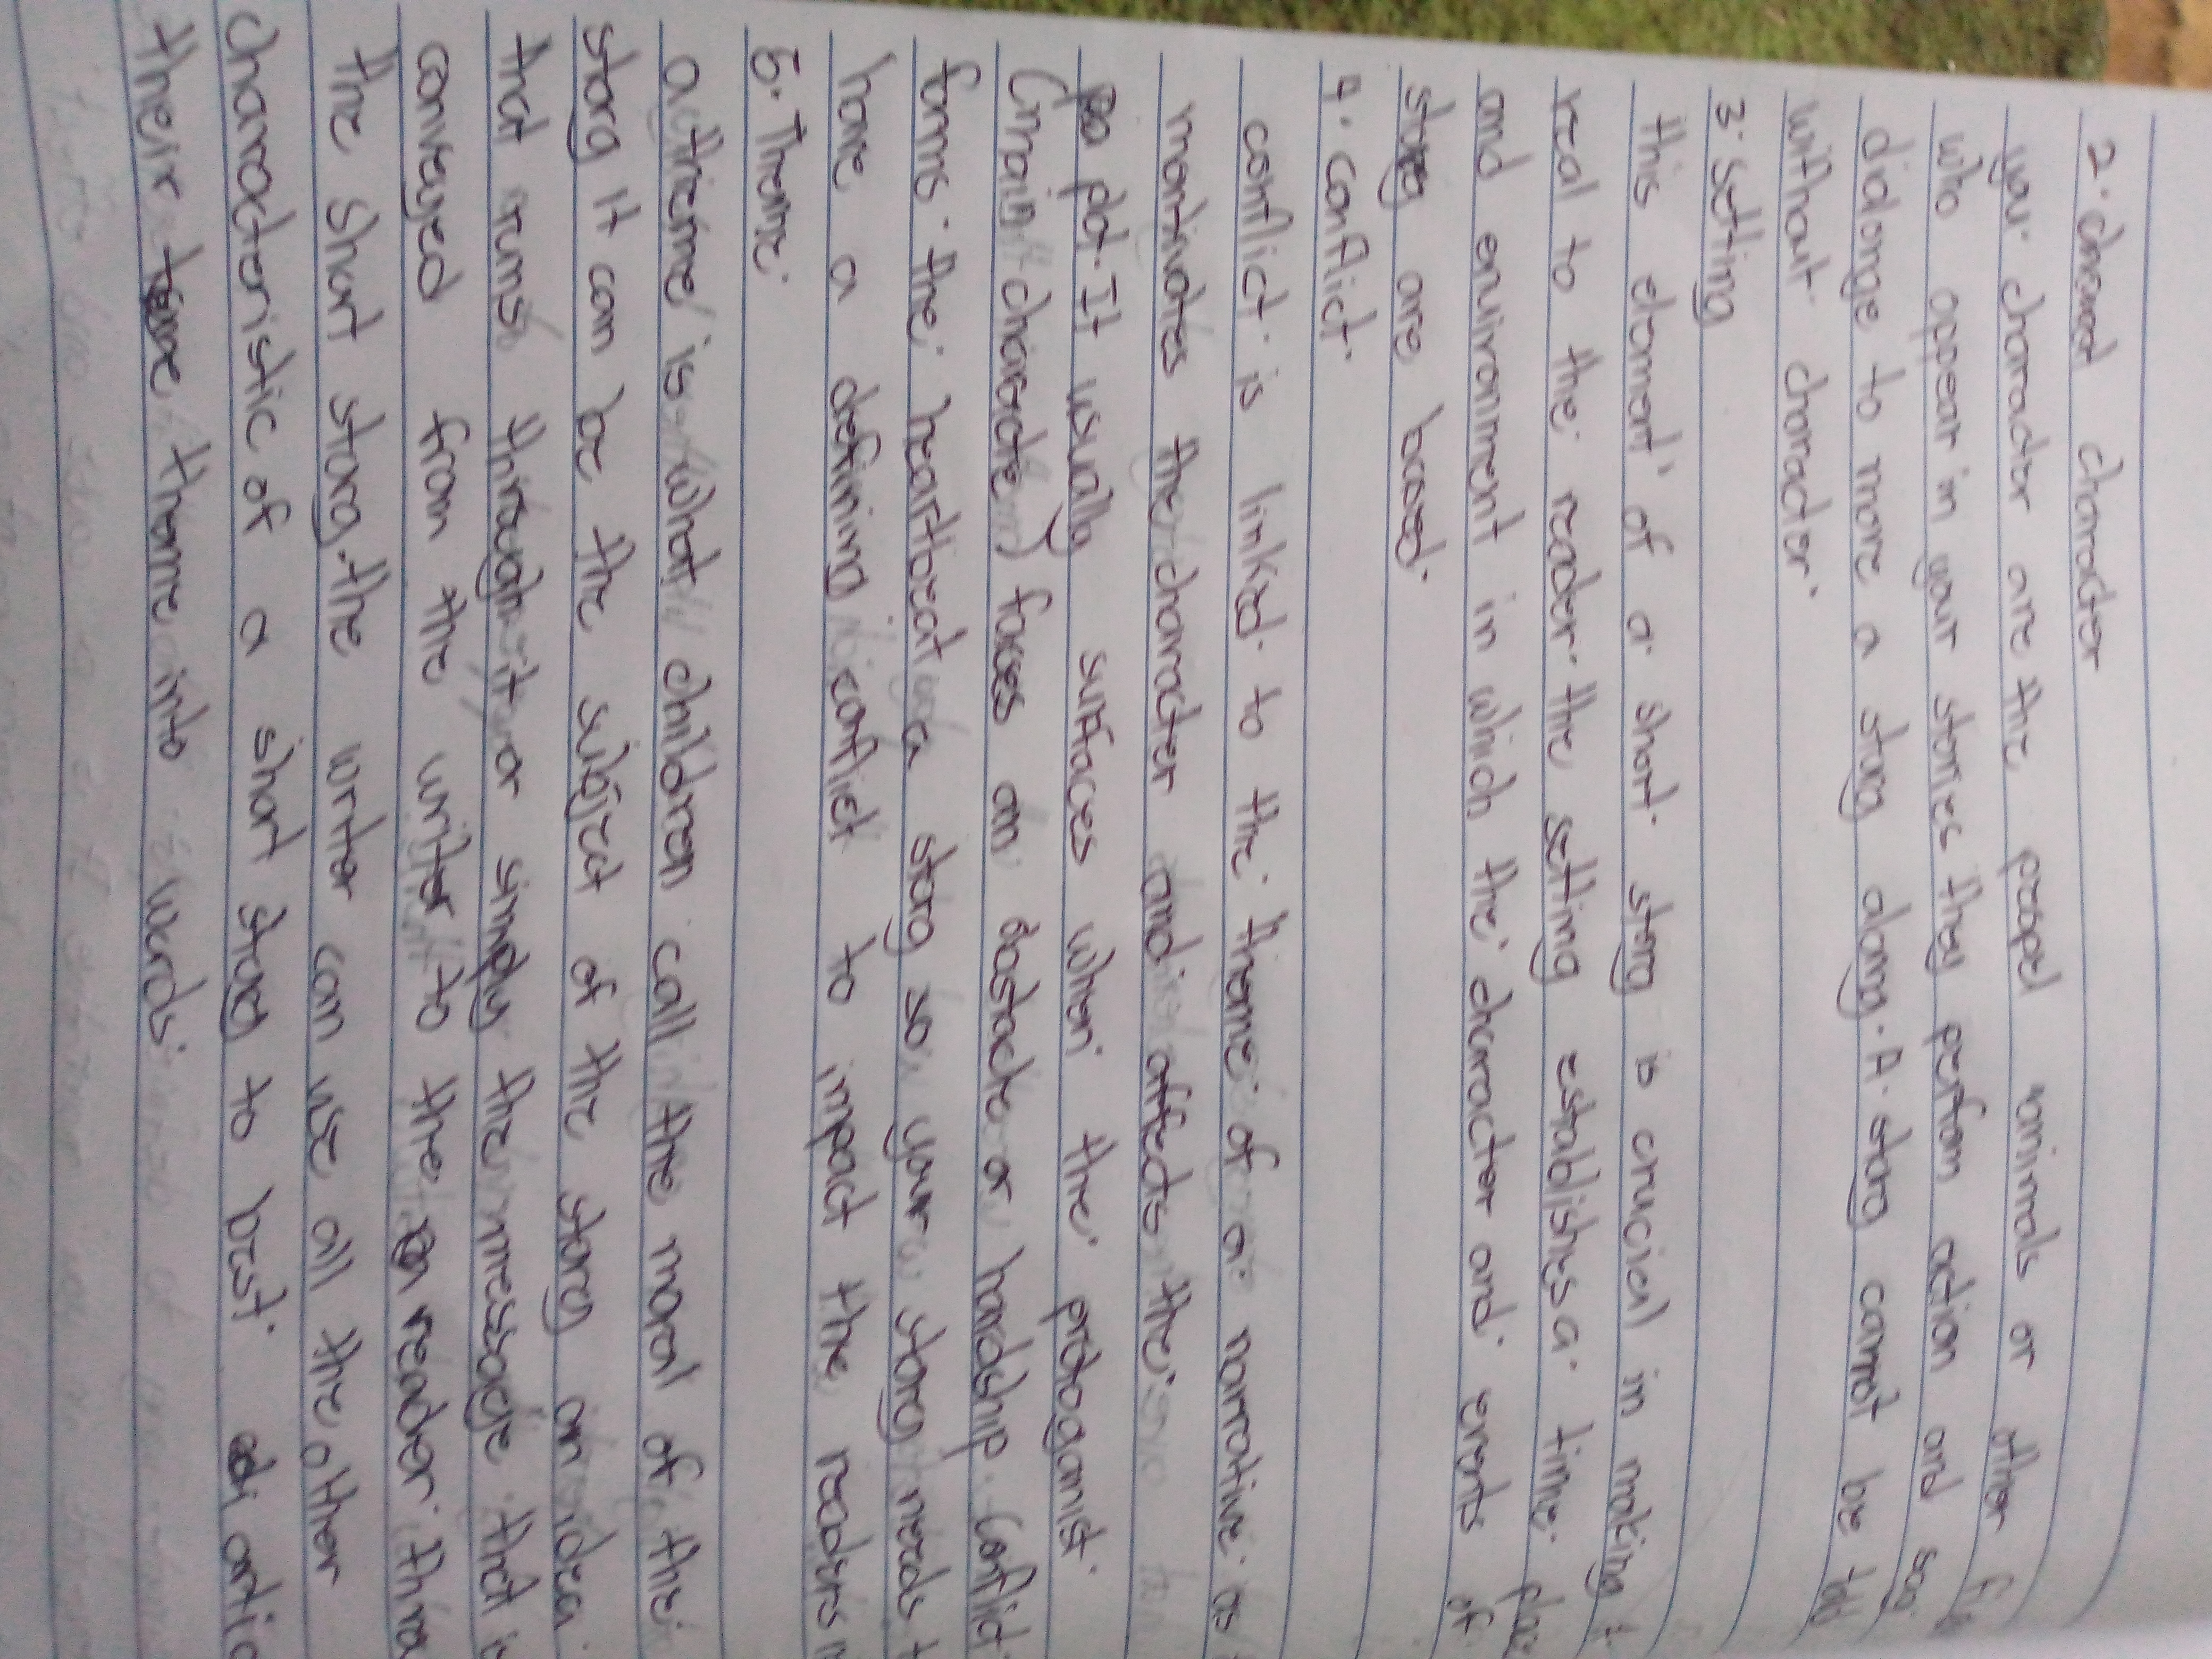 2. character
your character are the peopel animals or other
who appear in your stories they perfom action and say
dialonge to more a story along. A story cannot be told
without character.
3. Setting
this element of a short story is crucial in making
real to the reader. the setting establishes a time
and environment in which the character and events of
story are based.
4. Conflict.
conflict is linked to the theme of a narrative as
montivates the character and affects the
plot. It usually surfaces when the protoganist.
(main character) faces an obastacle or hardship. Conflict
forms the heartbeat a story so your story needs
have a defining conflict to impact the readers
5. Theme.
a theme is what children call the moral of the
story it can be the subject of the story an idea
that runs through it or simply the message that is
conveyed from the writer to the reader. thro
the short story. the writer can use all the other
characteristic of a short stoey to best artic
their theme into words.